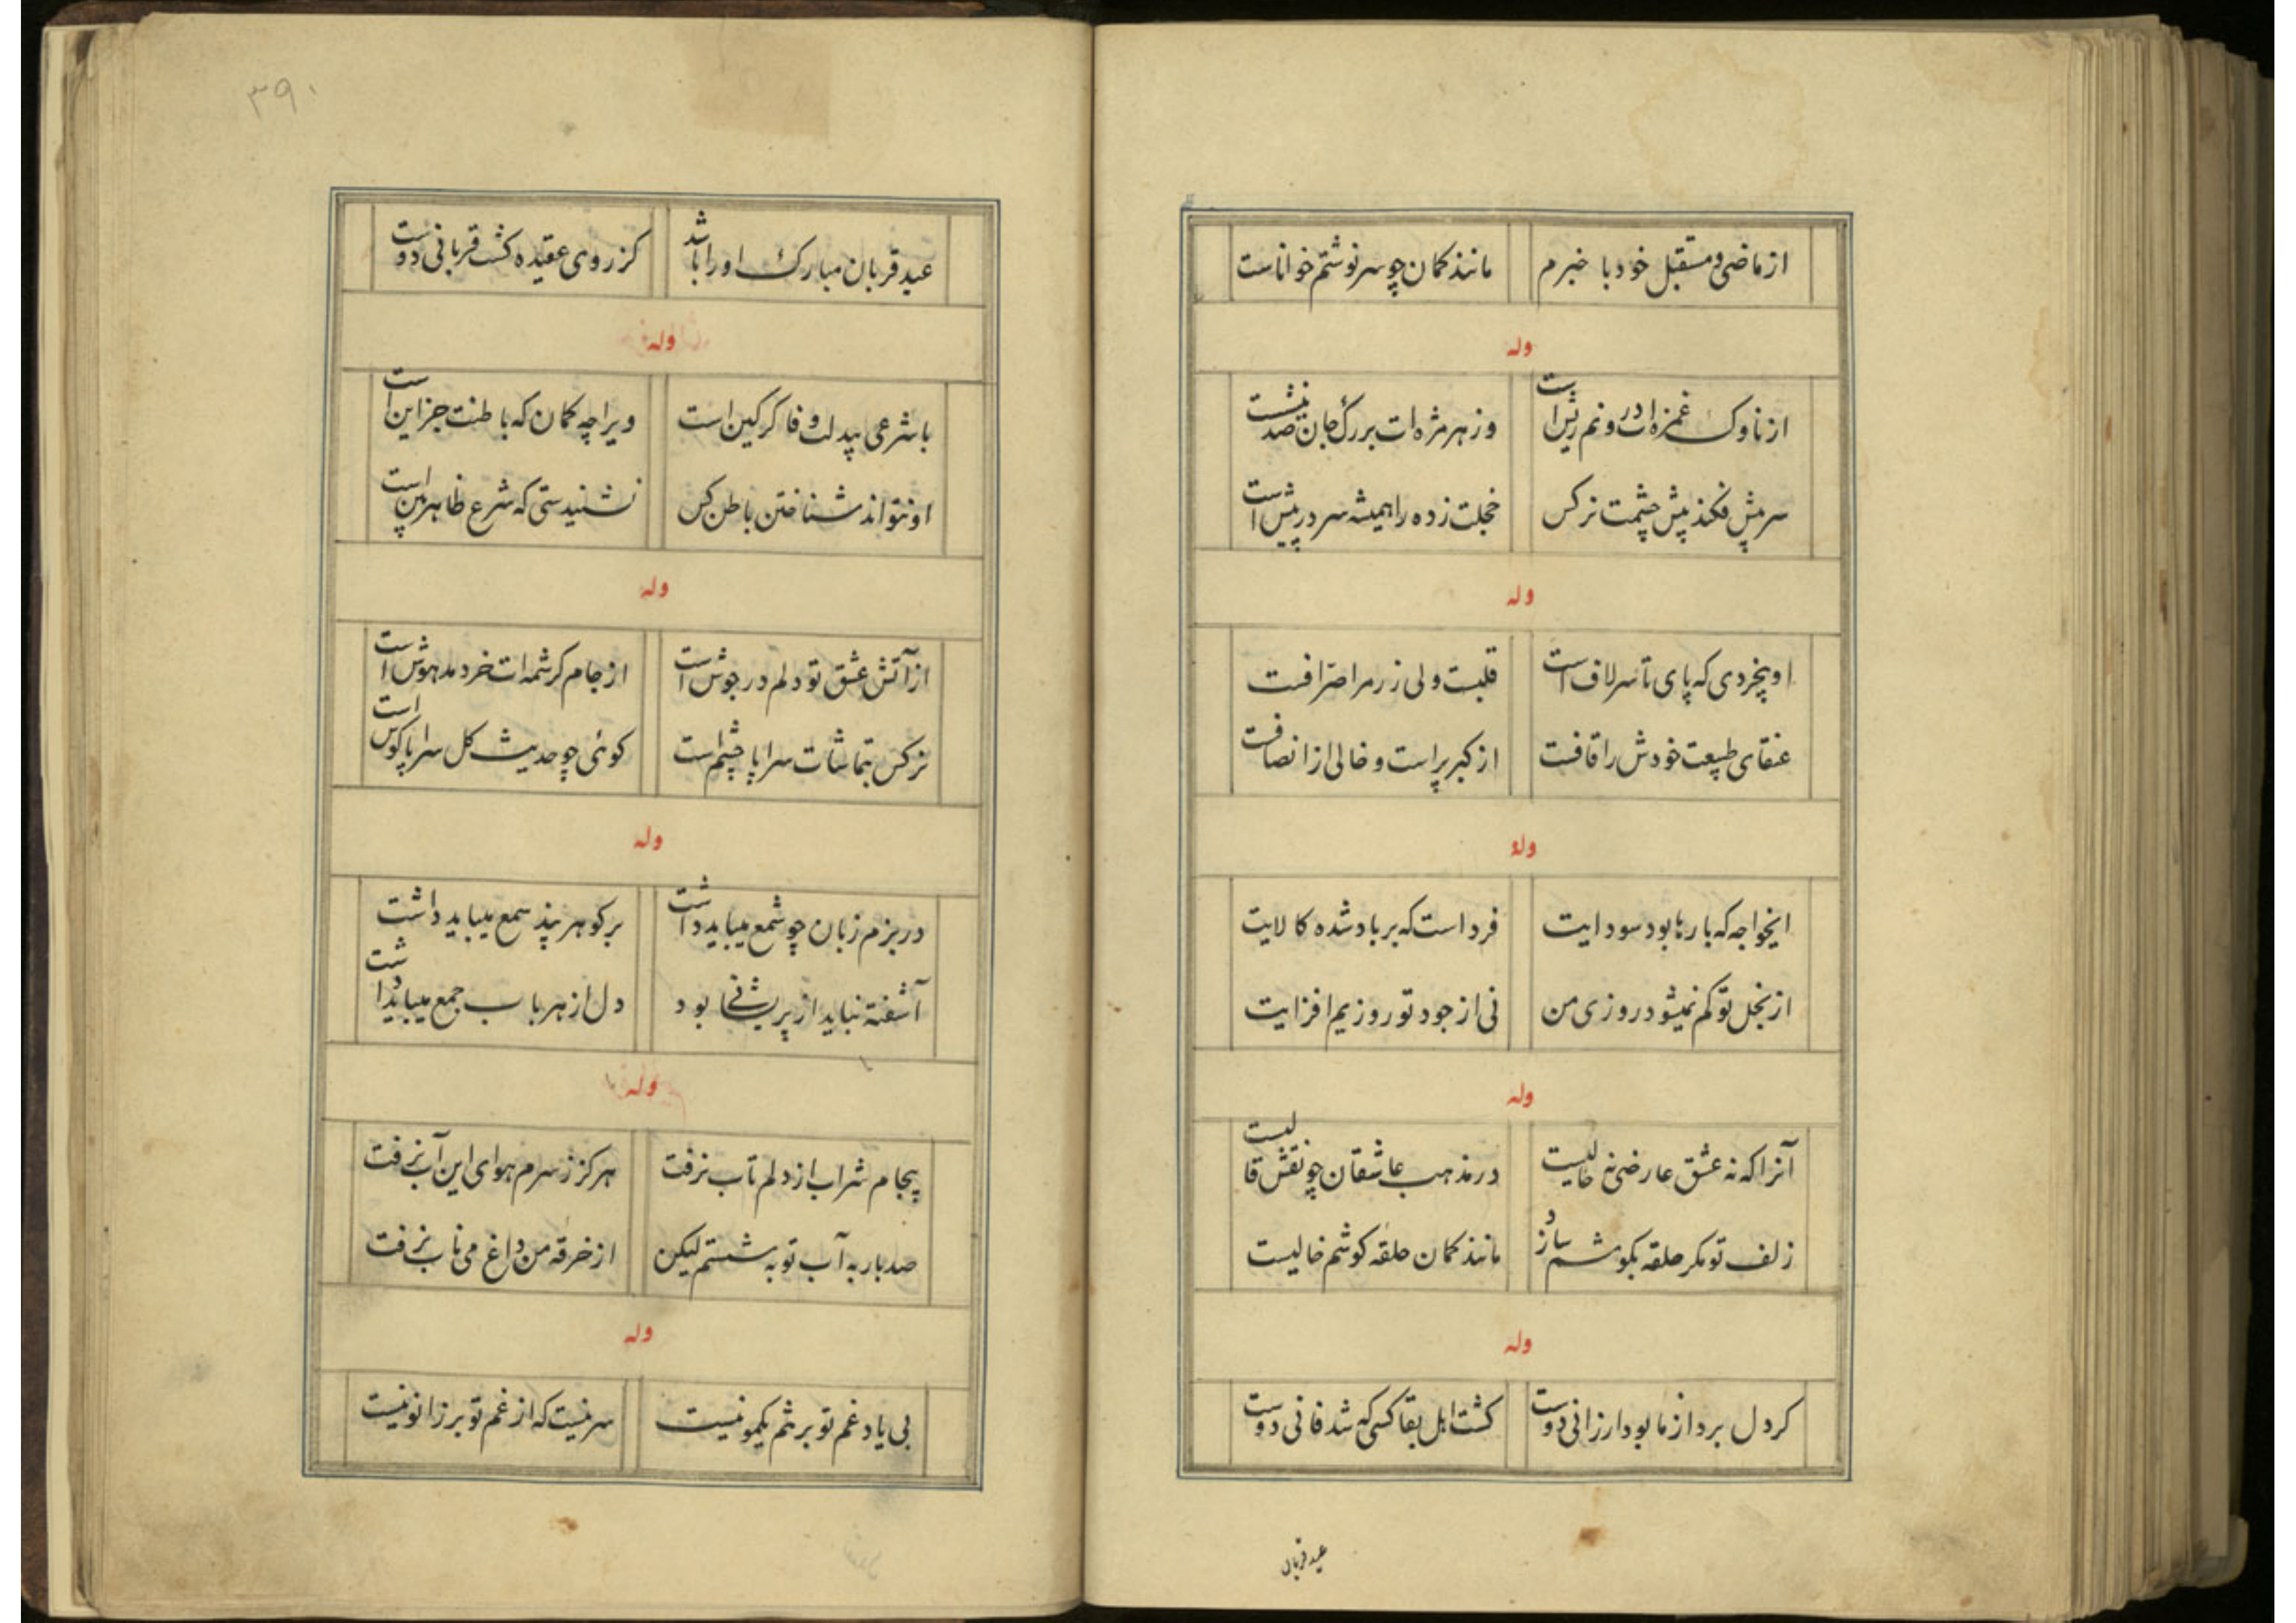 از ماضی و مستقبل خود با خبرم مانند کمان چو سرنوشتم خواناست
وله
از ناوک غمزه ات درونم ریش است وز هر مژه ات بر رگ جان صد نیشست
سر پیش فکند پیش چشمت نرکس خجلت زده را همیشه سر در پیش است
وله
او بیخردی که پای تا سر لاف است قلبست ولی ز زمرا صرافست
عنقای طبیعت خودش را قافست از کبر پر است و خالی از انصافست
وله
ایخواجه که بارها بود سودایت فرداست که بر باد شده کالایت
از بخل تو کم نمیشود روزی من نی از جود تو روزیم افزایت
وله
آنرا که نه عشق عارضی نه خالیست در مذهب عاشقان چو نقش قالیست
زلف تو مکر حلقه بکوشم سازد مانند کمان حلقه کوشم خالیست
وله
کر دل برد از ما بود ارزانی دوست کشت اهل بقا کسی که شد فانی دوست
عید قربان
۳۹۰
عید قربان مبارک او را باشد کز روی عقیده کشت قربانی دوست
وله
با شرعی بیدلت وفا کر کین است ویرا چه کمان که باطنت جز این است
او نتواند شناختن باطن کس نشنیدستی که شرع ظاهربین است
وله
از آتش عشق تو دلم در جوش است از جام کرشمه ات خرد مدهوش است
نرکس بتماشات سراپا چشم است کوئی چو حدیث کل سراپا کوش است
وله
در بزم زبان چو شمع میباید داشت بر کوهر پند سمع میباید داشت
آشفته نباید از پریشانی بود دل از هر باب جمع میباید داشت
وله
بیجام شراب از دلم تاب نرفت هرکز ز سرم هوای این آب نرفت
صد بار به آب توبه شستم لیکن از خرقه من داغ می ناب نرفت
وله
بی یاد غم تو بر تنم یکمو نیست سر نیست که از غم تو بر زانو نیست